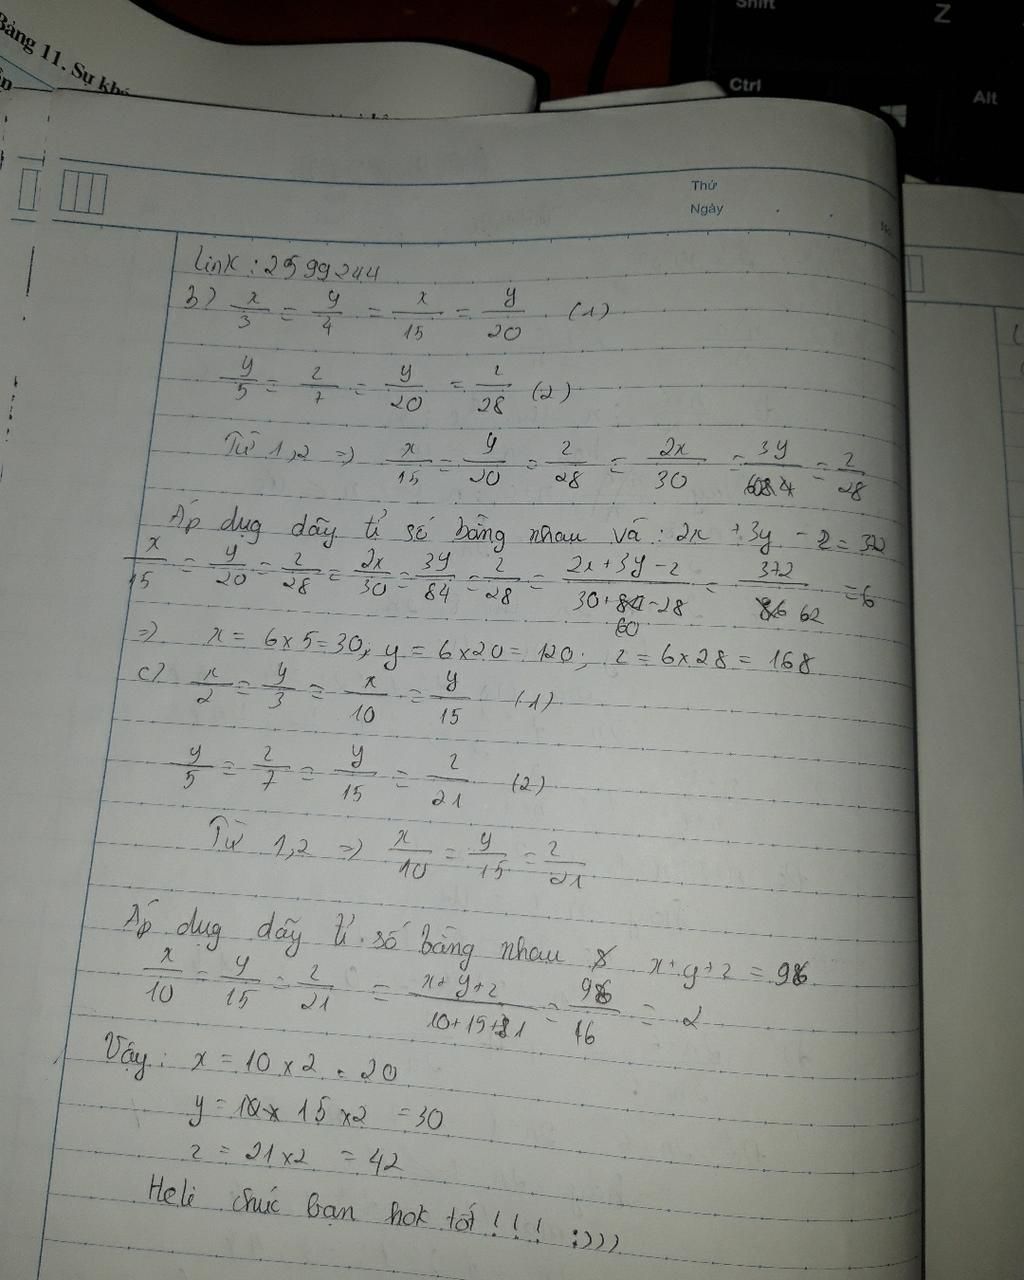 Bảng 11. Sự khó
Shift
Z
Ctrl
Alt
Thứ
Ngày
link : 2599244
b) x/3 = y/4 = x/15 = y/20 (1)
y/5 = z/7 = y/20 = z/28 (2)
Từ 1,2 => x/15 = y/20 = z/28 = 2x/30 = 3y/60 = z/28
Áp dụg dãy tỉ số bằng nhau và : 2x + 3y - z = 372
x/15 = y/20 = z/28 = 2x/30 = 3y/84 = z/28 = (2x+3y-z)/(30+60-28) = 372/62 = 6
=> x = 6x5=30; y = 6x20= 120; z = 6x28 = 168
c) x/2 = y/3 = x/10 = y/15 (1)
y/5 = z/7 = y/15 = z/21 (2)
Từ 1,2 => x/10 = y/15 = z/21
Áp dụg dãy tỉ số bằng nhau x+y+z = 98
x/10 = y/15 = z/21 = (x+y+z)/(10+15+21) = 98/46 = 2
Vậy: x = 10 x 2 = 20
y = 15 x2 = 30
z = 21x2 = 42
Heli chúc bạn hok tốt ! ! ! :)))